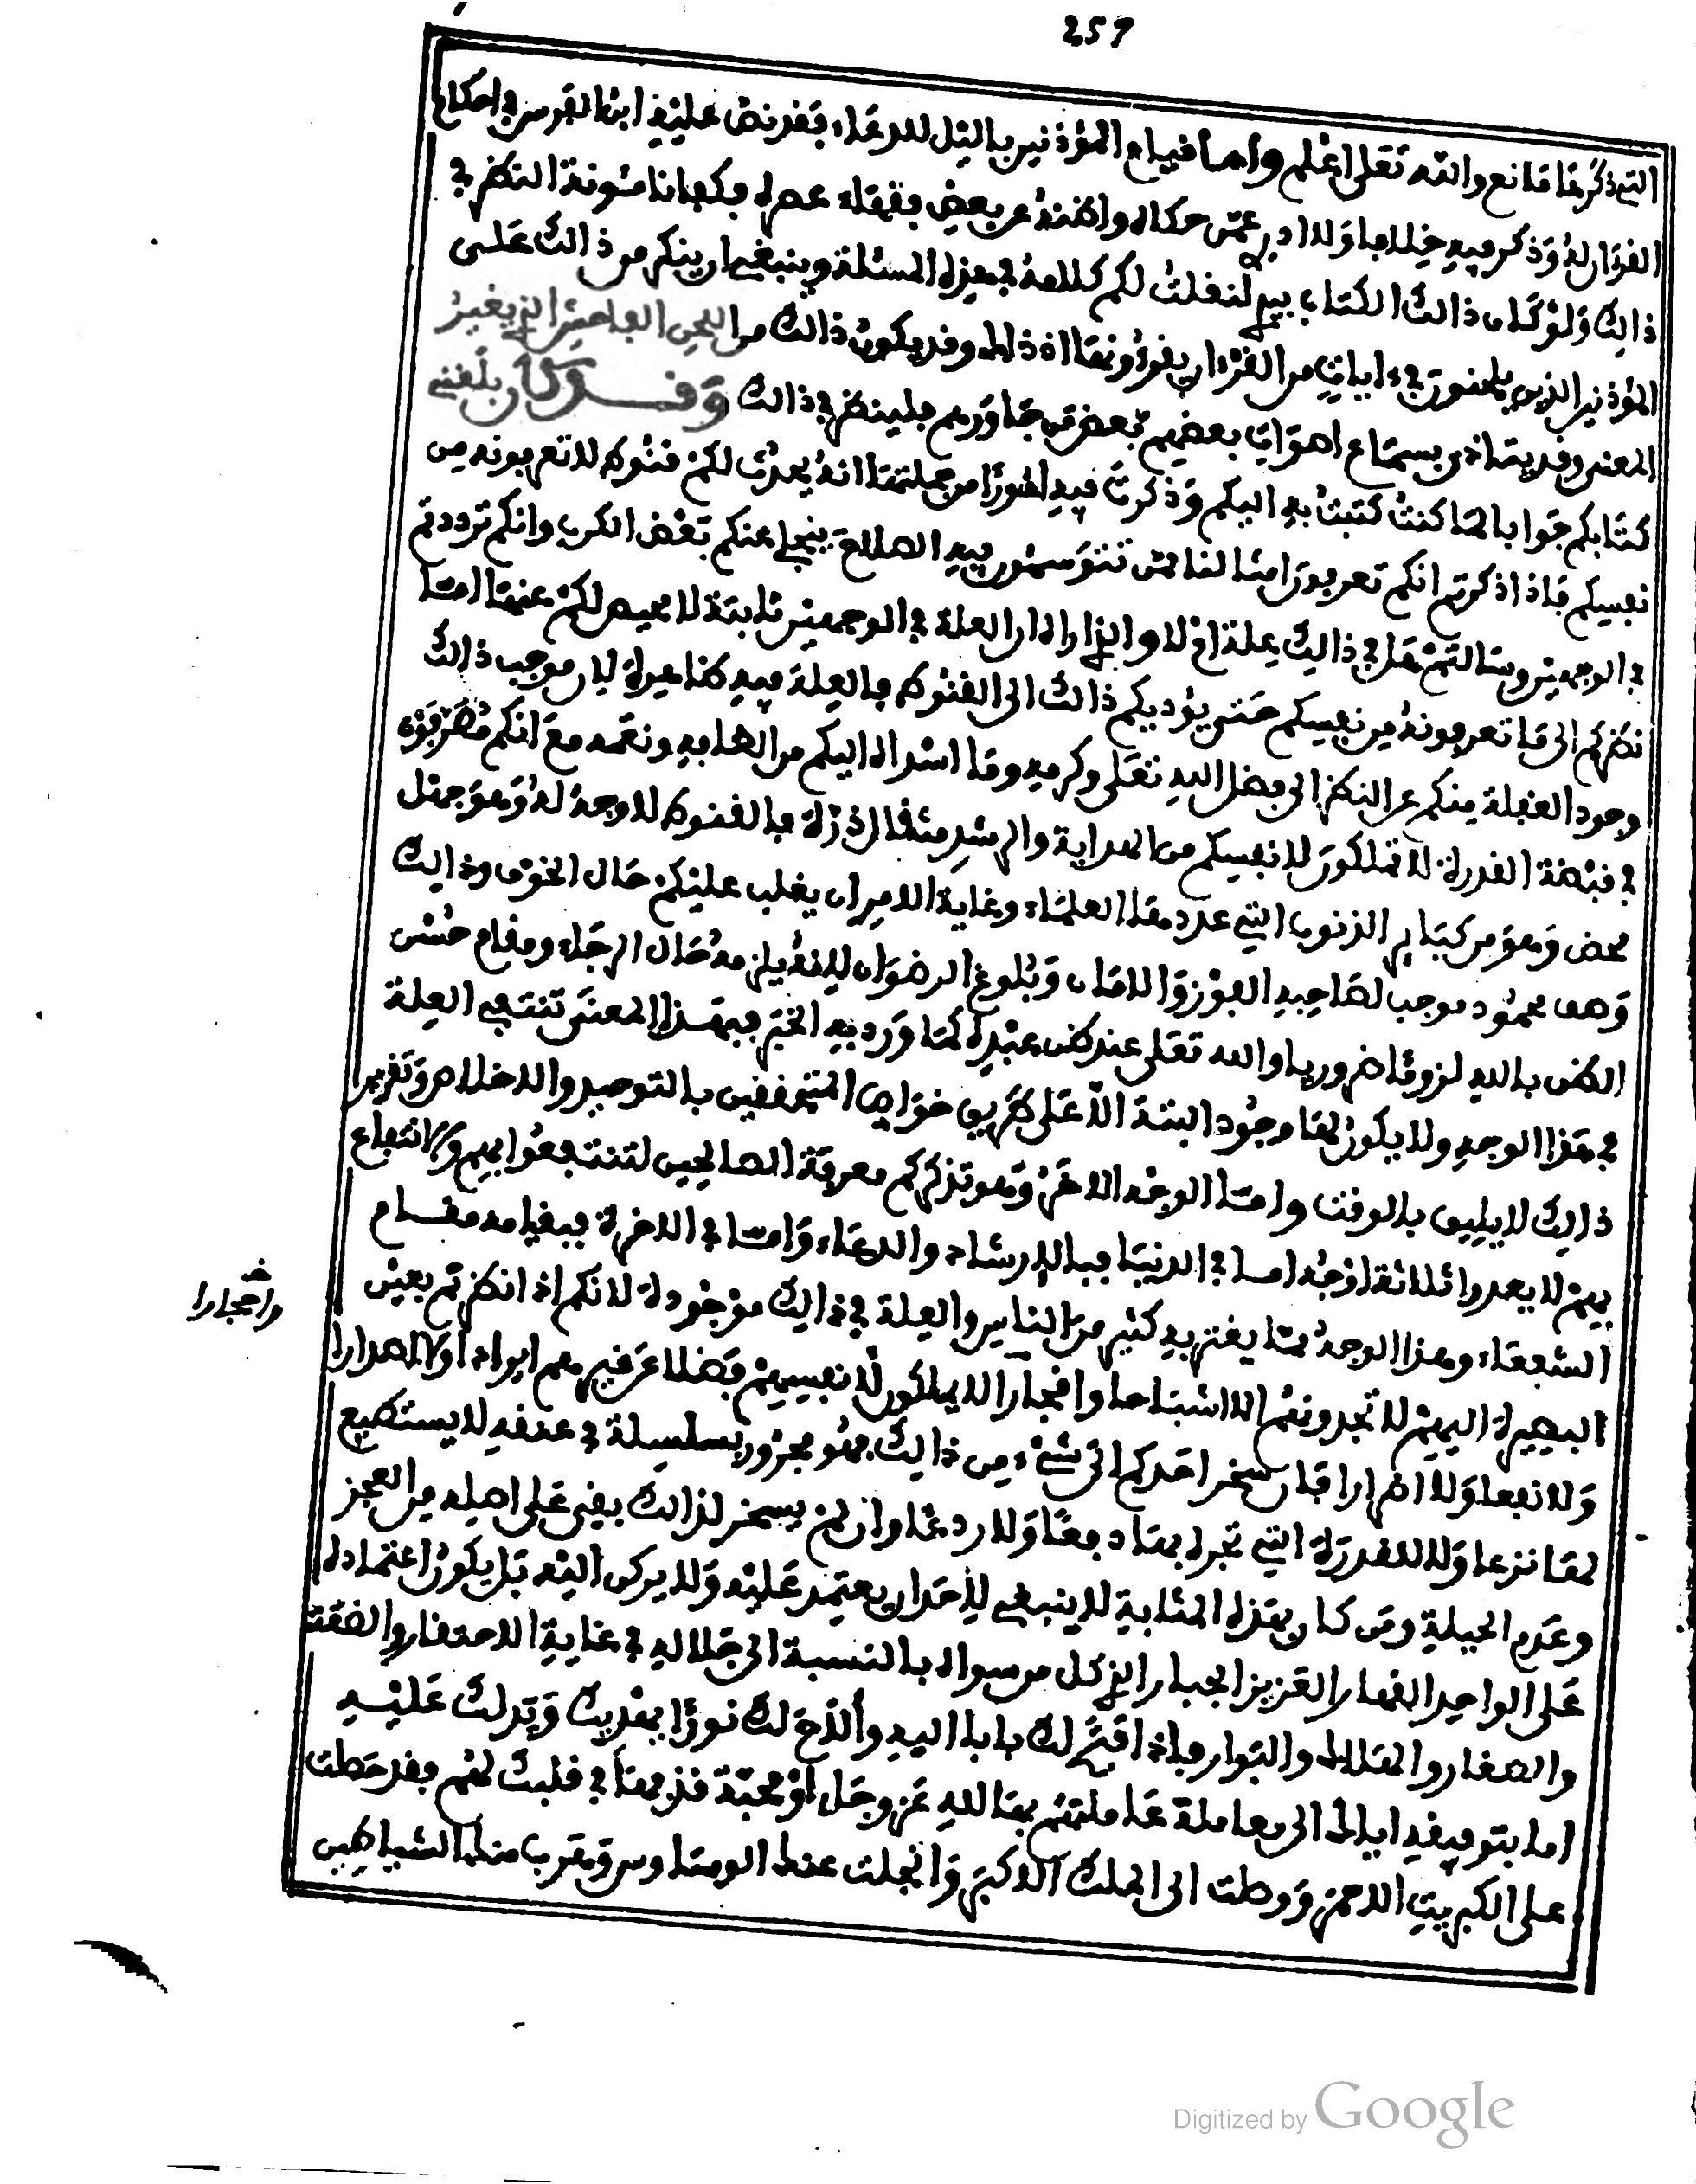 257
التي ذكرها مانع والله تعلى اعلم واما قيام المؤذنين باليل للدعاء فقد نص عليه ابن الفرس في احكام
القرءان له وذكر فيه خلافا ولا ادري عمن حكاه واظنه عن بعض فقهاء عصره وكفانا مئونة النظر في
ذالك ولو كان ذالك الكتاب بيدي لنقلت لكم كلامه في هذه المسئلة وينبغي ان ينكر من ذالك على
المؤذنين الذين يلحنون في ءايات من القرءان يقرءونها اذ ذاك وقد يكون ذالك من اللحن الفاحش الذي يغير
المعنى وقد يتاذى بسماع اصوات بعضهم بعض من جاورهم فلينظر في ذالك وقد كان بلغني
كتابكم جوابا لما كنت كتبت به اليكم وذكرت فيه امورا من جملتها انه يحدث لكم قنوط لما تعرفونه من
نفسكم فاذا ذكرتم انكم تعرفون امثالنا ممن تتوسمون فيه الصلاح ينجلي عنكم بعض الكرب وانكم ترددتم
في الوجهين وسالتم هل في ذالك علة ام لا والذي اراه ان العلة في الوجهين ثابتة لا محيص لكم عنها اما
نظركم الى ما تعرفونه من نفسكم حتى يؤديكم ذالك الى القنوط فالعلة فيه ظاهرة لان موجب ذالك
وجود الغفلة منكم عن النظر الى فضل الله تعلى وكرمه وما اسداه اليكم من الطافه ونعمه مع انكم مصرفون
في قبضة القدرة لا تملكون لانفسكم من الهداية والرشد مثقال ذرة فالقنوط لا وجه له وهو جهل
محض وهو من كباير الذنوب التي عددها العلماء وغاية الامر ان يغلب عليكم حال الخوف وذالك
وصف محمود موجب لصاحبه الفوز والامان وبلوغ الرضوان لانه يلزمه حال الرجاء ومقام حسن
الظن بالله لزوما ضروريا والله تعلى عند ظن عبده كما ورد به الخبر فبهذا المعنى تنتفي العلة
في هذا الوجه ولا يكون لها وجود البتة الا على طريق خواص المتحققين بالتوحيد والاخلاص وتقرير
ذالك لا يليق بالوقت واما الوجه الاخر وهو تذكركم معرفة الصالحين لتنتفعوا بهم والانتفاع
بهم لا يعدوا ثلاثة اوجه اما في الدنيا فبالارشاد والدعاء واما في الاخرة فبقيامه مقام
الشفعاء وهذا الوجه مما يغتر به كثير من الناس والعلة في ذالك موجودة لانكم اذا نظرتم بعين
البصيرة اليهم لا تجدونهم الا اشباحا وافجارا لا يملكون لانفسهم فضلا عن غيرهم ايرادا ولا اصدارا
واحجارا
ولا نفعا ولا اضرارا فان سخر احدكم الى شيء من ذالك فهو مجرور بسلسلة في عنقه لا يستطيع
لها نزعا ولا للقدرة التي تجره بها دفعا ولا ردعا وان لم يسخر لذالك بقي على اصله من العجز
وعدم الحيلة ومن كان بهذه المثابة لا ينبغي لاحد ان يعتمد عليه ولا يركن اليه بل يكون اعتماده
على الواحد القهار العزيز الجبار الذي كل من سواه بالنسبة الى جلاله في غاية الاحتقار والضعة
والصغار والهلاك والبوار فاذا فتح لك بابا اليه والاح لك نورا يهديك ويدلك عليه
اما بتوفيقه اياك الى معاملة عاملتهم بها لله عز وجل او محبة قذفها في قلبك لهم فقد حصلت
على الكبريت الاحمر ووصلت الى الملك الاكبر وانجلت عنك الوساوس وهربت منك الشياطين
Digitized by Google